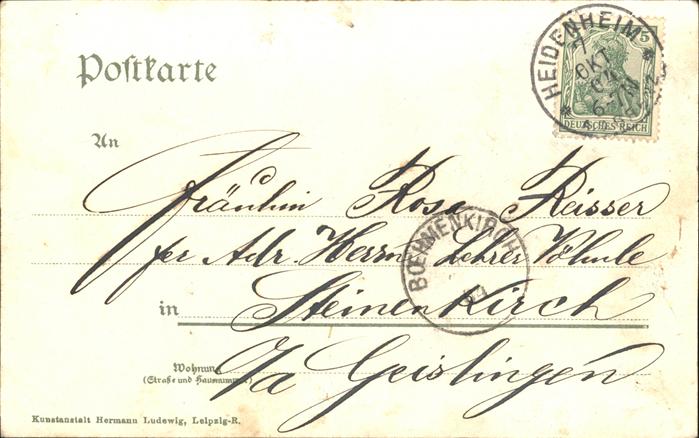 HEIDENHEIM
7
OKT
04
6-7N
5
DEUTSCHES REICH
Postkarte
An
Fräulein Rosa Reisser
per Adr. Herrn Lehrer
BOEHMENKIRCH
04
in Steinenkirch
Wohnung
(Straße und Hausnummer)
i/a Geislingen
Kunstanstalt Hermann Ludewig, Leipzig-R.